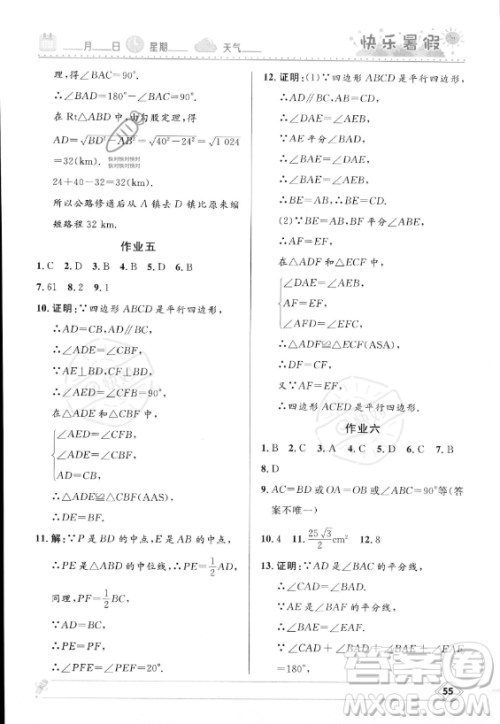 月 日 星期 天气 快乐暑假
理，得∠BAC=90°.
∴∠BAD=180°-∠BAC=90°.
在Rt△ABD中，由勾股定理，得
AD=√(BD²-AB²)=√(40²-24²)=√1 024
=32(km).
24+40-32=32(km).
所以公路修通后从A镇去D镇比原来缩
短路程32 km.
作业五
1. C 2. D 3. B 4. C 5. A 6. B
7. 61 8. 2 9. 1
10. 证明：∵四边形ABCD是平行四边形，
∴AD=CB，AD∥BC，
∴∠ADE=∠CBF，
∵AE⊥BD，CF⊥BD，
∴∠AED=∠CFB=90°，
在△ADE和△CBF中，
∠AED=∠CFB，
∠ADE=∠CBF，
AD=CB，
∴△ADE≌△CBF(AAS)，
∴AE=CF.
11. 解：∵P是BD的中点，E是AB的中点，
∴PE是△ABD的中位线，
∴PE=1/2AD，
同理，PF=1/2BC，
∵AD=BC，
∴PE=PF，
∴∠PFE=∠PEF=20°.
12. 证明：(1)∵四边形ABCD是平行四边形，
∴∠DAE=∠AEB，
∵AE平分∠BAD，
∴∠DAE=∠BAE，
∴∠BAE=∠AEB，
∴BE=AB，
∴BE=CD.
(2)∵BE=AB，BF平分∠ABE，
∴AF=EF，
在△ADF和△ECF中，
∠DAE=∠AEB，
AF=EF，
∴△ADF≌△ECF(ASA)，
∴DF=CF，
又∵AF=EF，
∴四边形ACED是平行四边形.
作业六
1. B 2. C 3. D 4. C 5. C 6. C 7. B
8. D
9. AC=BD或OA=OB或∠ABC=90°等(答
案不唯一)
10. 4 11. 25√3/2 cm² 12. 8
13. 证明：∵AD是∠BAC的平分线，
∴∠CAD=∠BAD，
∵AE是∠BAF的平分线，
∴∠BAE=∠FAE，
∵∠CAD+∠BAD+∠BAE+∠FAE
=180°，
55